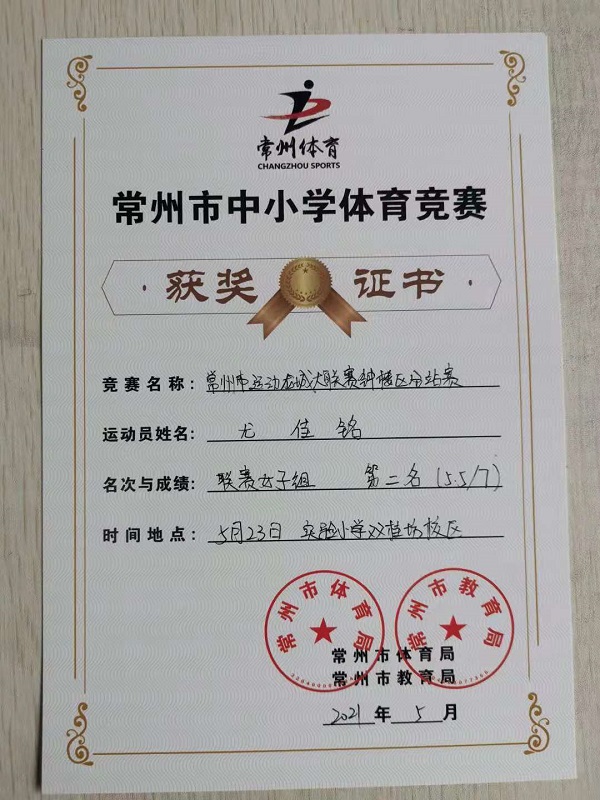 常州体育
CHANGZHOU SPORTS
常州市中小学体育竞赛
·获奖 证书·
竞赛名称：常州市运动龙城大联赛钟楼区分站赛
运动员姓名：尤佳铭
名次与成绩：联赛女子组 第二名（5.5/7）
时间地点：5月23日 实验小学双桂坊校区
常州市体育局
常州市教育局
常州市体育局
常州市教育局
2021年5月